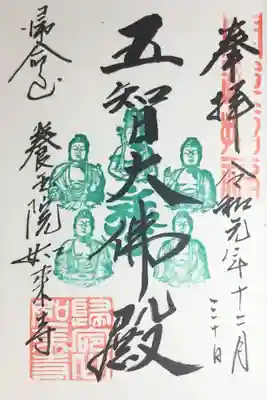 奉拝
令和元年十二月三十日
五智大佛殿
帰命山
養玉院如来寺